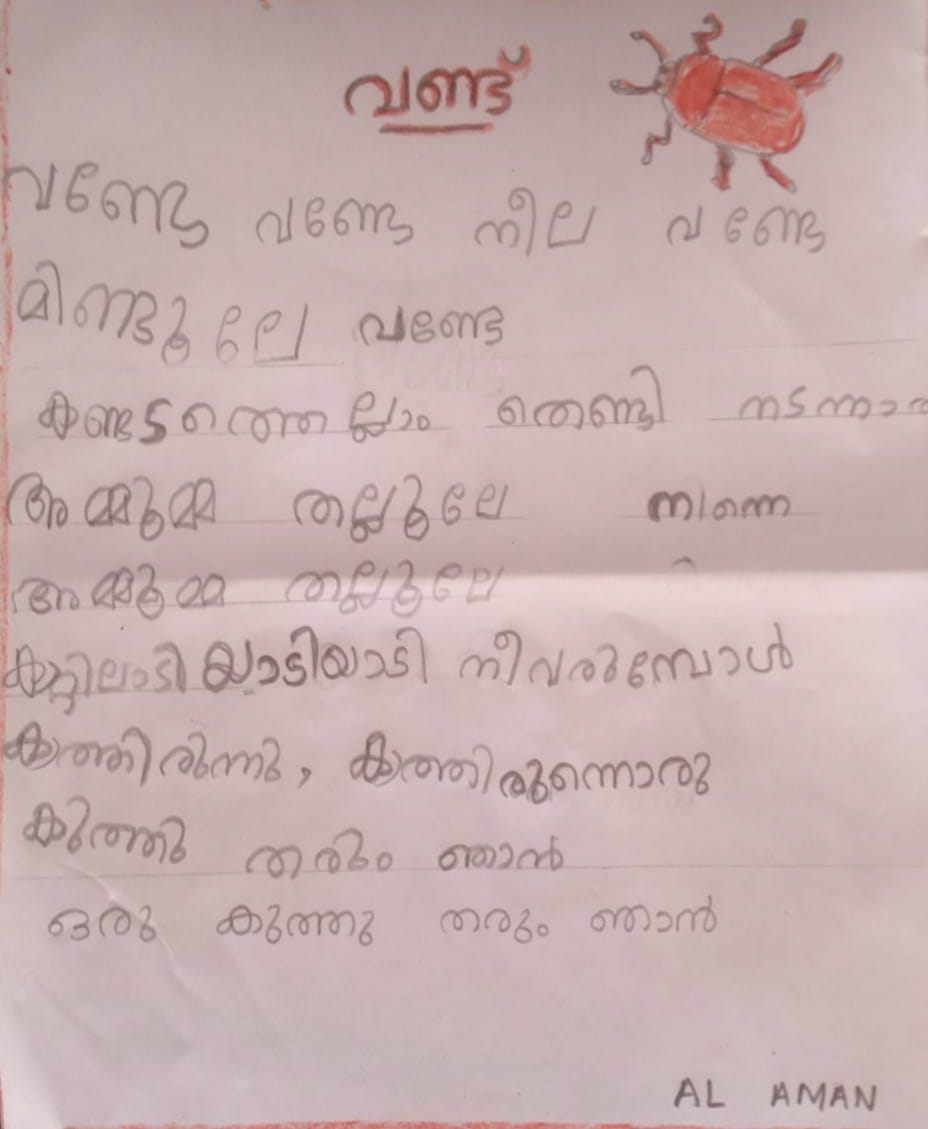 വണ്ട്
വണ്ടേ വണ്ടേ നീല വണ്ടേ
മിണ്ടൂലേ വണ്ടേ
കണ്ടടത്തെല്ലാം തെണ്ടി നടന്നാൽ
അമ്മൂമ്മ തല്ലൂലെ നിന്നെ
അമ്മൂമ്മ തല്ലൂലെ
കാറ്റിലാടിയാടിയാടി നീവരുമ്പോൾ
കാത്തിരുന്നു, കാത്തിരുന്നൊരു
കുത്തു തരും ഞാൻ
ഒരു കുത്തു തരും ഞാൻ
AL AMAN